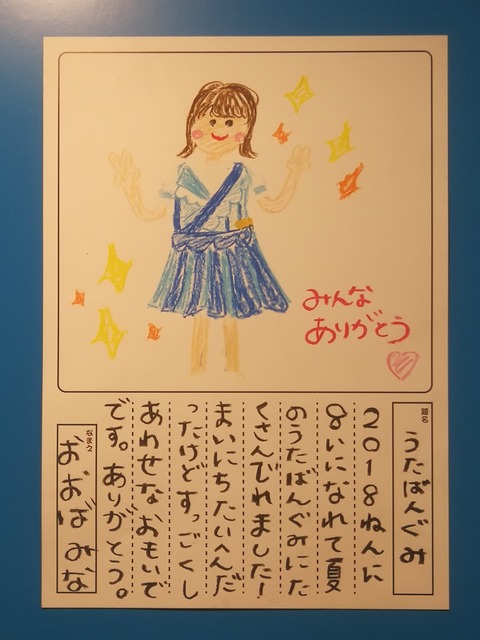 みんな
ありがとう
題名
うたばんぐみ
2018ねんに
8いになれて夏
のうたばんぐみにた
くさんでれました!
まいにちたいへんだ
ったけどすっごくし
あわせなおもいで
です。ありがとう。
なまえ
おおばみな